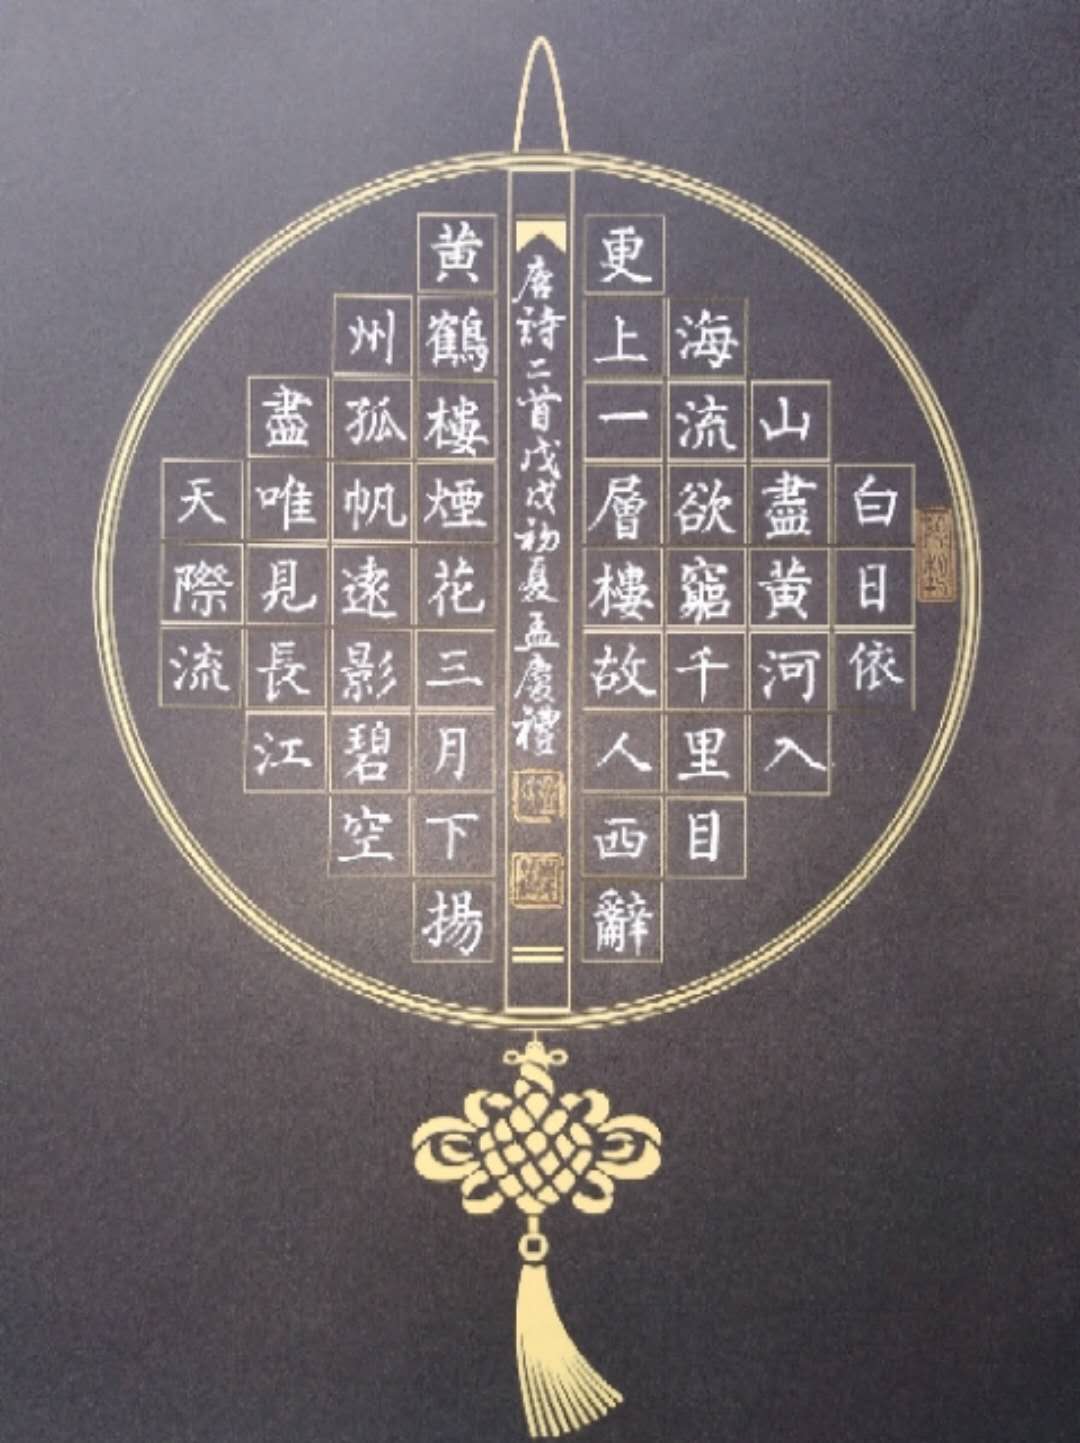 白日依
山盡黄河入
海流欲窮千里目
更上一層樓故人西辭
唐詩二首戊戌初夏孟慶禮
黄鶴樓煙花三月下揚
州孤帆遠影碧空
盡唯見長江
天際流